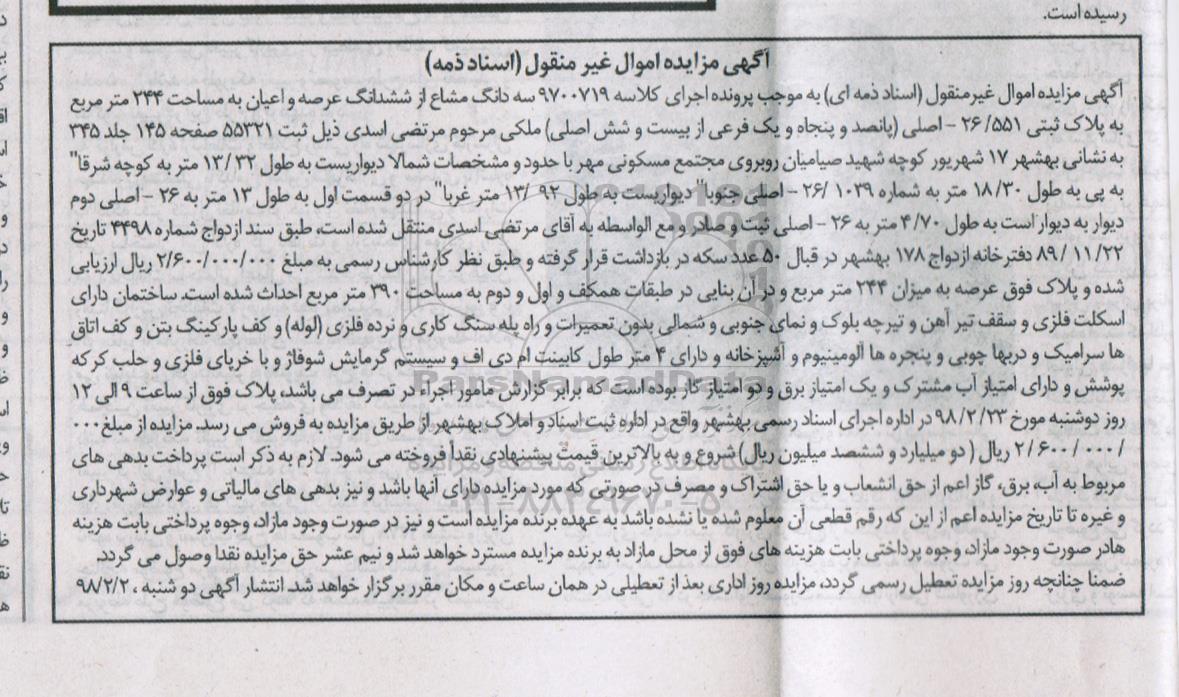 رسیده است.
آگهی مزایده اموال غیر منقول (اسناد ذمه)
آگهی مزایده اموال غیرمنقول (اسناد ذمه ای) به موجب پرونده اجرای کلاسه ۹۷۰۰۷۱۹ سه دانگ مشاع از ششدانگ عرصه و اعیان به مساحت ۲۴۴ متر مربع
به پلاک ثبتی ۲۶/۵۵۱ - اصلی (پانصد و پنجاه و یک فرعی از بیست و شش اصلی) ملکی مرحوم مرتضی اسدی ذیل ثبت ۵۵۳۲۱ صفحه ۱۴۵ جلد ۳۴۵
به نشانی بهشهر ۱۷ شهریور کوچه شهید صیامیان روبروی مجتمع مسکونی مهر با حدود و مشخصات شمالا دیواریست به طول ۱۳/۳۲ متر به کوچه شرقا"
به پی به طول ۱۸/۳۰ متر به شماره ۱۰۳۹ /۲۶ - اصلی جنوبا" دیواریست به طول ۹۲ /۱۳ متر غربا" در دو قسمت اول به طول ۱۳ متر به ۲۶ - اصلی دوم
دیوار به دیوار است به طول ۴/۷۰ متر به ۲۶ - اصلی ثبت و صادر و مع الواسطه به آقای مرتضی اسدی منتقل شده است، طبق سند ازدواج شماره ۴۴۹۸ تاریخ
۸۹/ ۱۱/۲۲ دفترخانه ازدواج ۱۷۸ بهشهر در قبال ۵۰ عدد سکه در بازداشت قرار گرفته و طبق نظر کارشناس رسمی به مبلغ ۲/۶۰۰/۰۰۰/۰۰۰ ریال ارزیابی
شده و پلاک فوق عرصه به میزان ۲۴۴ متر مربع و در آن بنایی در طبقات همکف و اول و دوم به مساحت ۳۹۰ متر مربع احداث شده است. ساختمان دارای
اسکلت فلزی و سقف تیر آهن و تیرچه بلوک و نمای جنوبی و شمالی بدون تعمیرات و راه پله سنگ کاری و نرده فلزی (لوله) و کف پارکینگ بتن و کف اتاق
ها سرامیک و دربها چوبی و پنجره ها آلومینیوم و آشپزخانه و دارای ۴ متر طول کابینت ام دی اف و سیستم گرمایش شوفاژ و با خرپای فلزی و حلب کرکه
پوشش و دارای امتیاز آب مشترک و یک امتیاز برق و دو امتیاز گاز بوده است که برابر گزارش مأمور اجراء در تصرف می باشد، پلاک فوق از ساعت ۹ الی ۱۲
روز دوشنبه مورخ ۹۸/۲/۲۳ در اداره اجرای اسناد رسمی بهشهر واقع در اداره ثبت اسناد و املاک بهشهر از طریق مزایده به فروش می رسد. مزایده از مبلغ ۰۰۰
/۰۰۰ /۲/۶۰۰ ریال ( دو میلیارد و ششصد میلیون ریال) شروع و به بالاترین قیمت پیشنهادی نقداً فروخته می شود. لازم به ذکر است پرداخت بدهی های
مربوط به آب، برق، گاز اعم از حق انشعاب و یا حق اشتراک و مصرف در صورتی که مورد مزایده دارای آنها باشد و نیز بدهی های مالیاتی و عوارض شهرداری
و غیره تا تاریخ مزایده اعم از این که رقم قطعی آن معلوم شده یا نشده باشد به عهده برنده مزایده است و نیز در صورت وجود مازاد، وجوه پرداختی بابت هزینه
هادر صورت وجود مازاد، وجوه پرداختی بابت هزینه های فوق از محل مازاد به برنده مزایده مسترد خواهد شد و نیم عشر حق مزایده نقدا وصول می گردد.
ضمنا چنانچه روز مزایده تعطیل رسمی گردد، مزایده روز اداری بعد از تعطیلی در همان ساعت و مکان مقرر برگزار خواهد شد. انتشار آگهی دو شنبه ، ۹۸/۲/۲
ParsNamadData
پایگاه اطلاع رسانی مناقصه و مزایده
۰۲۱-۸۸۳۴۹۶۷۰-۵